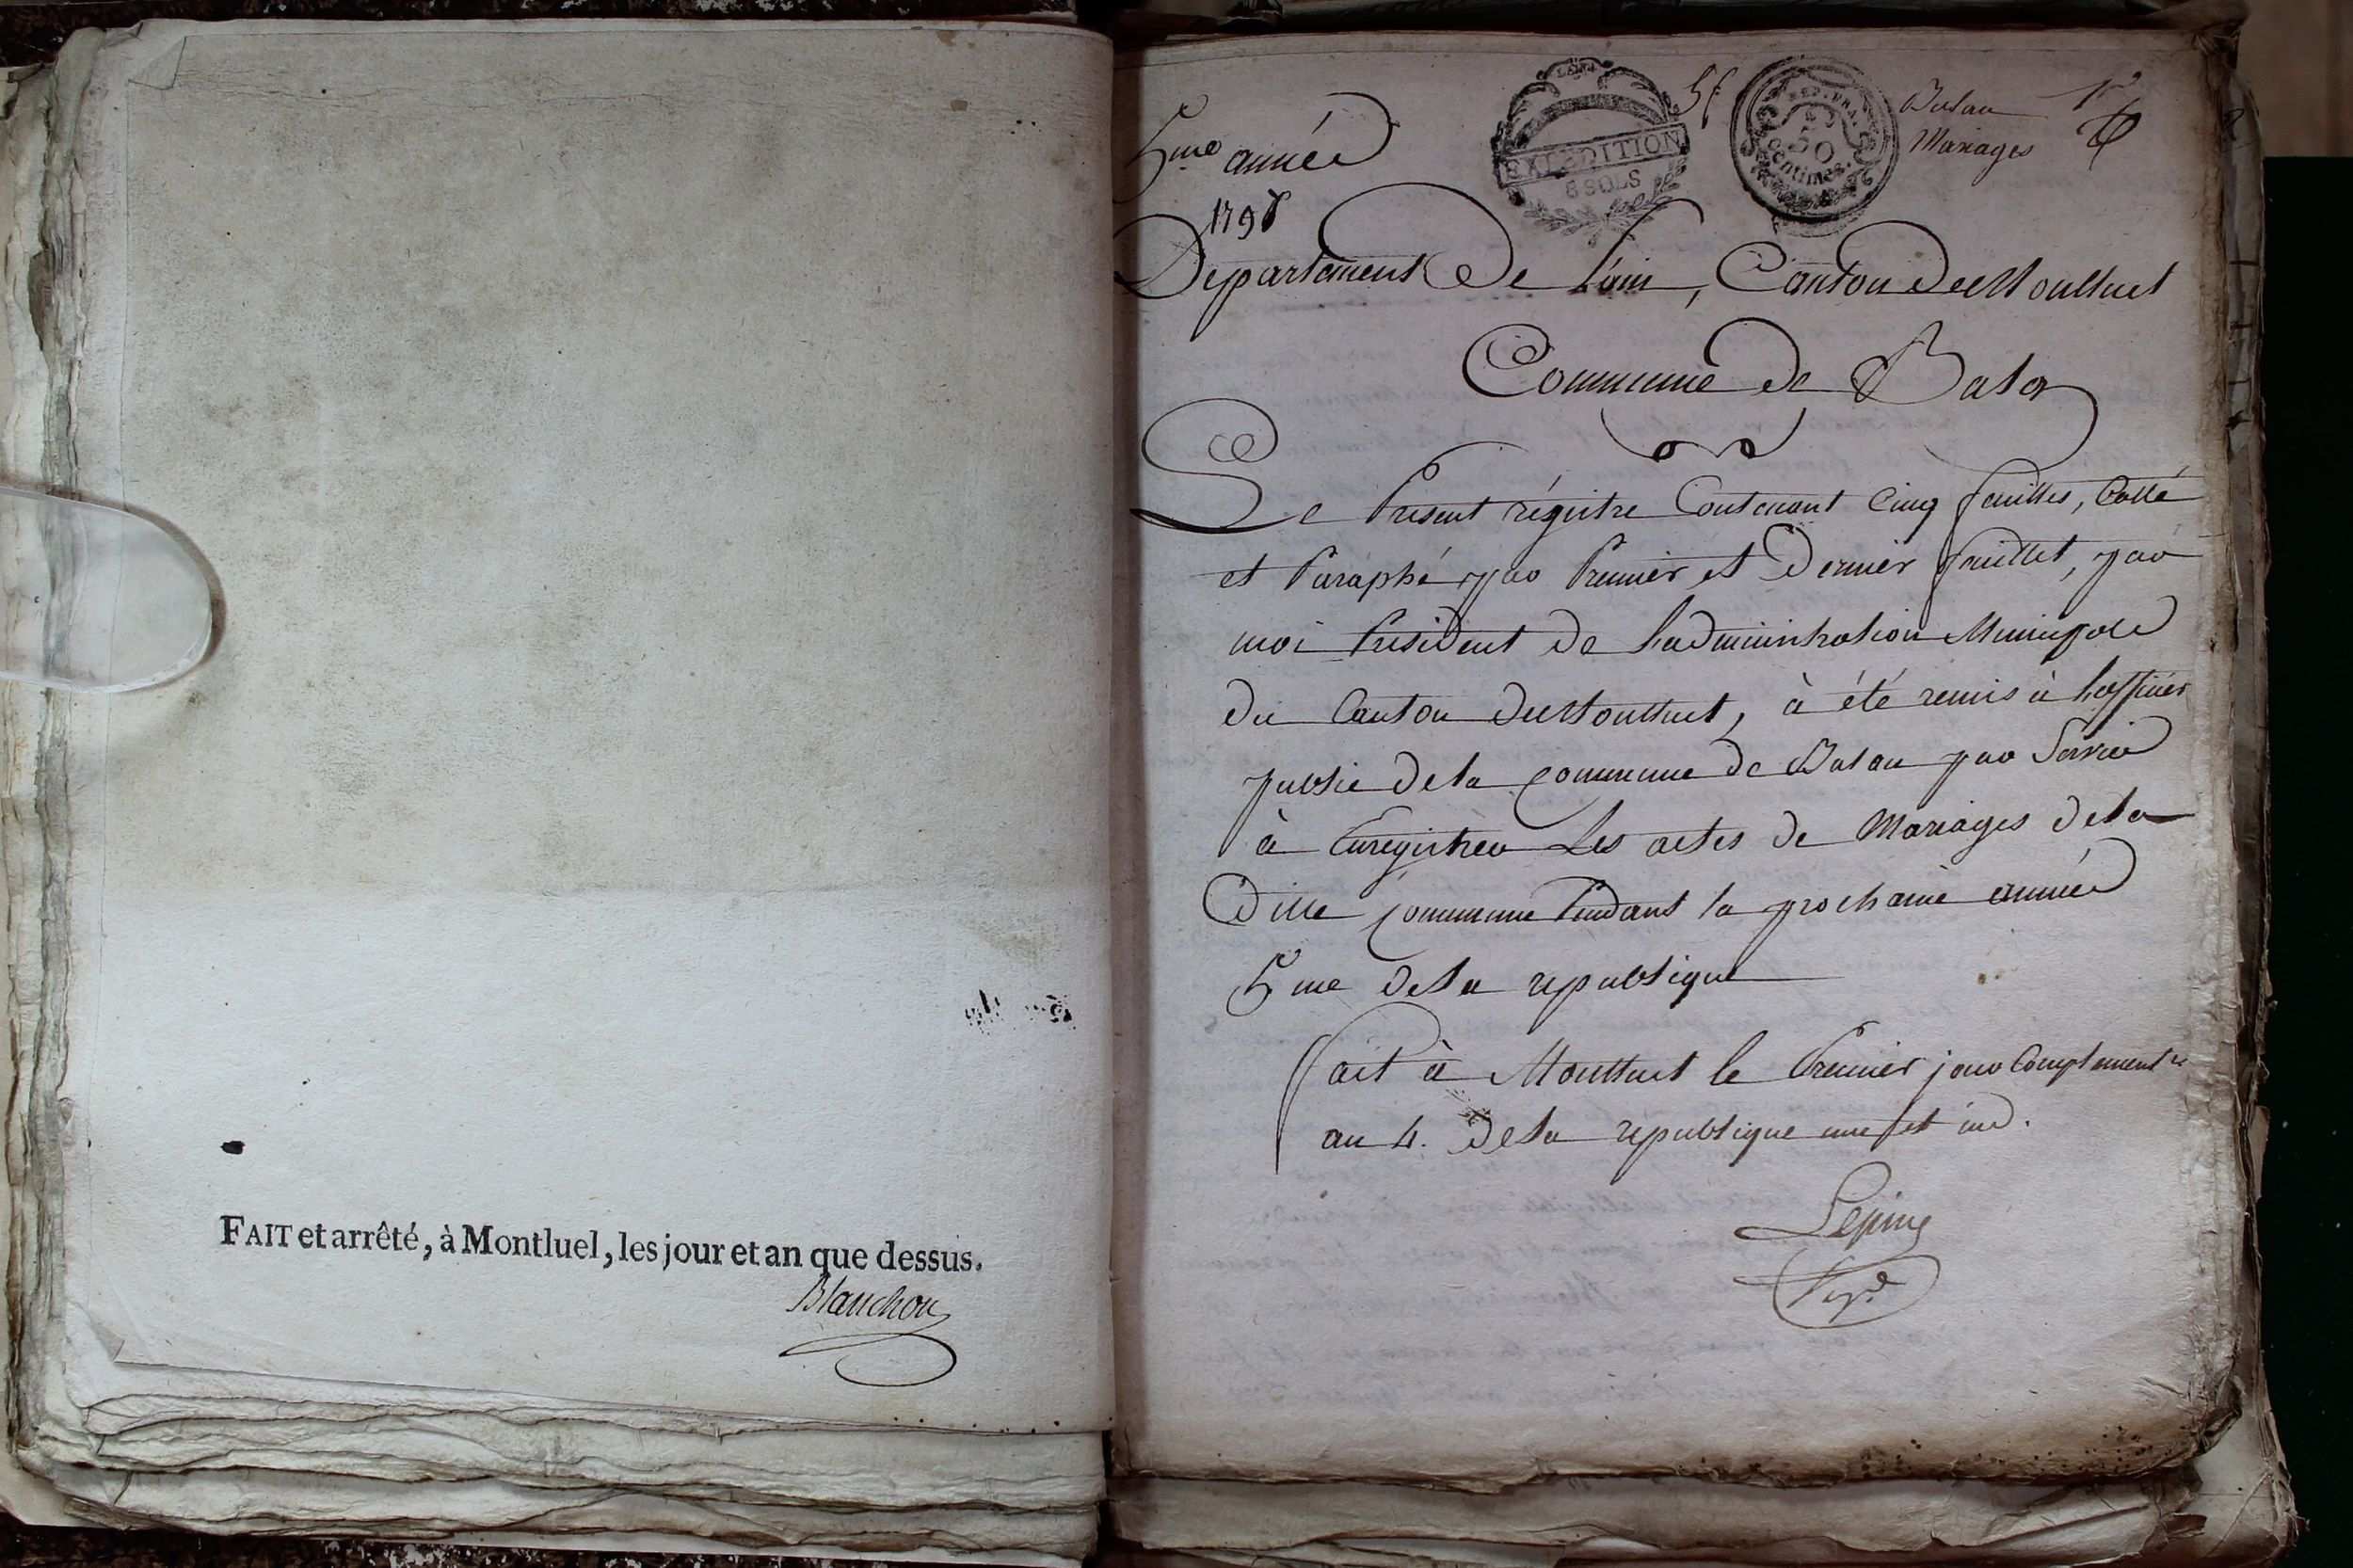 FAIT et arrêté, à Montluel, les jour et an que dessus.
Blanchon
5me année
1798
EXPEDITION
8 SOLS
5f
REP. FRA.
50
centimes.
Balan
Mariages
1er
Departement De Lain, Canton de Montluel
Commune de Balan
Le Present régistre Contenant Cinq feuilles, Cotté
et Paraphé par Premier et Dernier feuillet, par
moi President de Ladministration Municipale
du Canton de Montluel, à été remis à Lofficier
public de la commune de Balan par Servir
à Enregistrer Les actes de Mariages de la
Ditte commune Pendant la prochaine année
5me de la republique
fait à Montluel le Premier jour Complement.re
an 4. de la republique une et ind.
Lepine